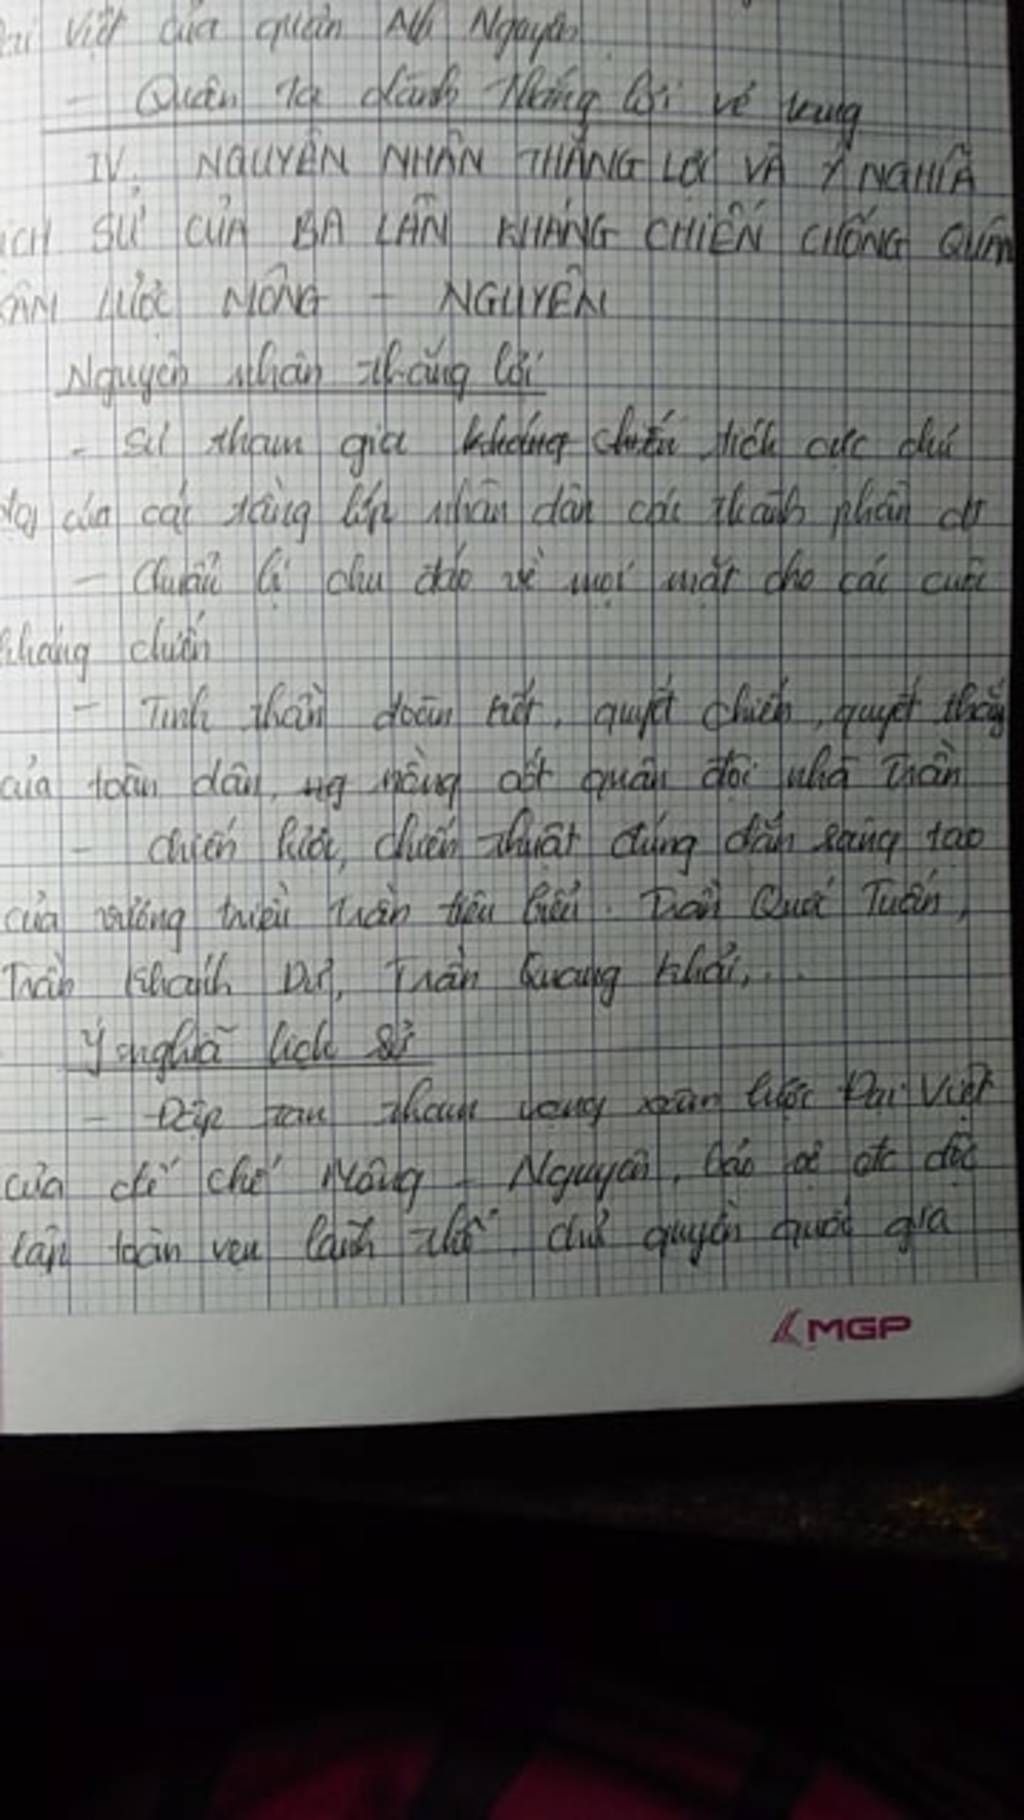 Việt của quân Ng Nguyên
- Quân ta dành thắng lợi vẻ vang
IV. NGUYÊN NHÂN THẮNG LỢI VÀ Ý NGHĨA
ỊCH SỬ CỦA BA LẦN KHÁNG CHIẾN CHỐNG QUÂN
ÂM LƯỢC MÔNG - NGUYÊN
Nguyên nhân thắng lợi
- Sự tham gia kháng chiến tích cực chủ
của các tầng lớp nhân dân các thành phần
- Chuẩn bị chu đáo về mọi mặt cho các cuộc
kháng chiến
- Tinh thần đoàn kết, quyết chiến, quyết thắng
của toàn dân, ng nòng cốt quân đội nhà Trần
- chiến lược, chiến thuật đúng đắn sáng tạo
của vương triều Trần tiêu biểu. Trần Quốc Tuấn,
Trần Khánh Dư, Trần Quang Khải,...
Ý nghĩa lịch sử
- Đập tan tham vọng xâm lược Đại Việt
của đế chế Mông - Nguyên, bảo vệ đc độc
lập toàn vẹn lãnh thổ, chủ quyền quốc gia
MGP